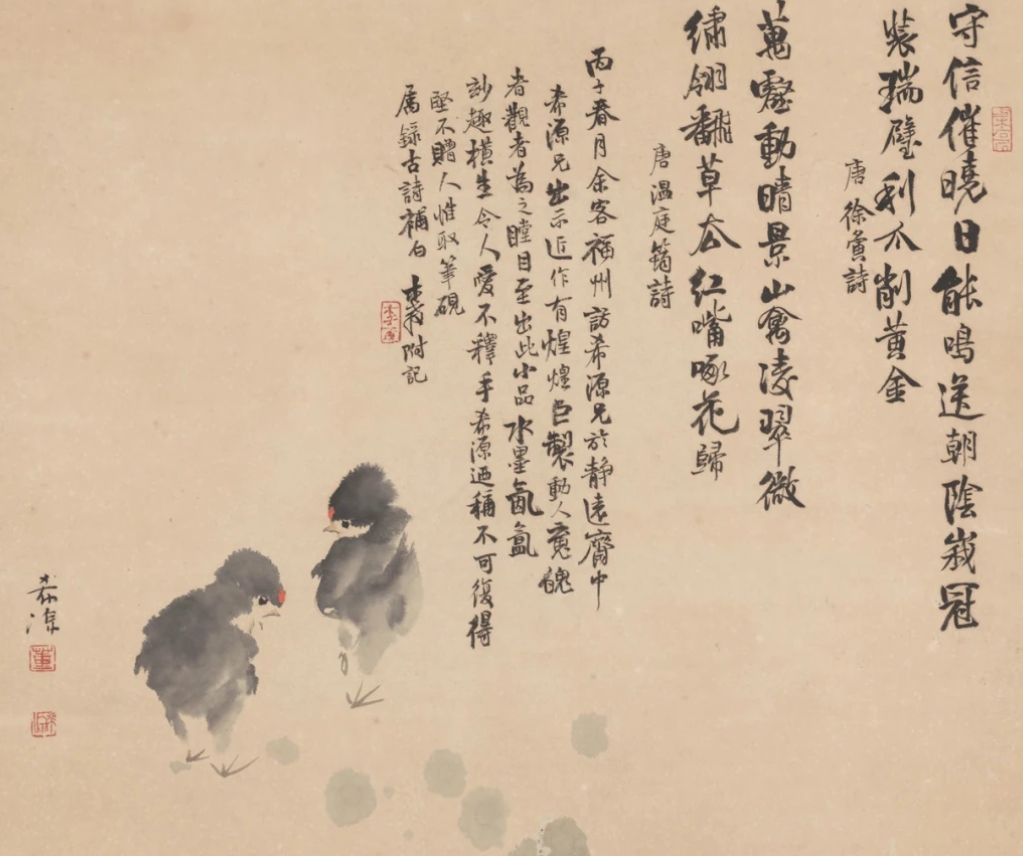 守信催曉日能鳴送朝陰峩冠
裝瑞璧利爪削黃金
唐徐夤詩
萬壑動晴景山禽凌翠微
繡翎翻草去红嘴啄花歸
唐温庭筠詩
丙子春月余客福州訪希源兄於静遠齋中
希源兄出示近作有煌煌巨製動人䰟魄
者觀者為之瞠目至出此小品水墨氤氲
妙趣横生令人愛不釋手希源迺稱不可復得
堅不贈人惟取筆硯
属録古詩補白 附記
希源
董